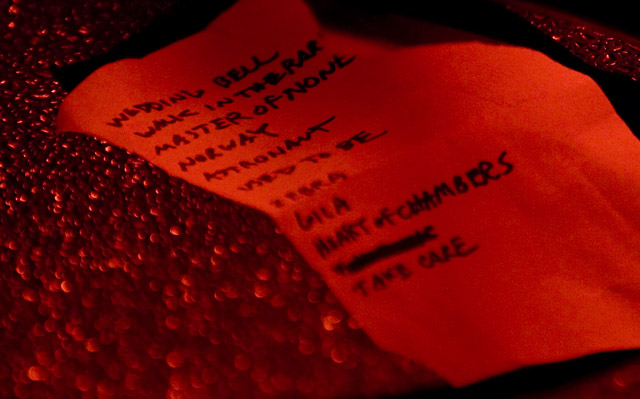 WEDDING BELL
WALK IN THE PARK
MASTER OF NONE
NORWAY
ASTRONAUT
USED TO BE
ZEBRA
GILA
HEART OF CHAMBERS
TAKE CARE